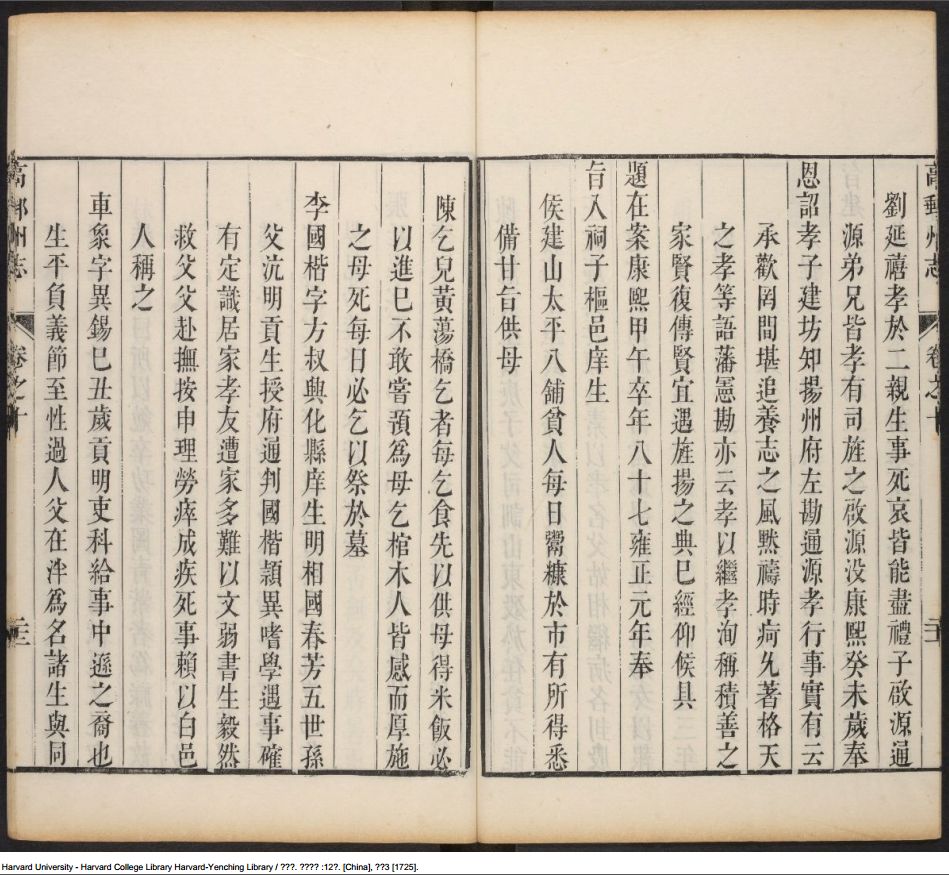 高郵州志 卷之十 二十
劉延禧孝於二親生事死哀皆能盡禮子啟源通
源弟兄皆孝有司旌之啟源没康熙癸未歲奉
恩詔孝子建坊知揚州府左勘通源孝行事實有云
承歡罔間堪追養志之風黙禱時疴允著格天
之孝等語藩憲勘亦云孝以繼孝洵稱積善之
家賢復傳賢宜遇旌揚之典巳經仰候具
題在案康熙甲午卒年八十七雍正元年奉
旨入祠子樞邑庠生
侯建山太平八舖貧人每日鬻糠於市有所得悉
備甘旨供母
陳乞兒黄蕩橋乞者每乞食先以供母得米飯必
以進巳不敢嘗預爲母乞棺木人皆感而厚施
之母死每日必乞以祭於墓
李國楷字方叔興化縣庠生明相國春芳五世孫
父沆明貢生授府通判國楷穎異嗜學遇事確
有定識居家孝友遭家多難以文弱書生毅然
救父父赴撫按申理勞瘁成疾死事賴以白邑
人稱之
車象字異錫巳丑歲貢明吏科給事中遜之裔也
生平負義節至性過人父在泮爲名諸生與同
高郵州志 卷之十
Harvard University - Harvard College Library Harvard-Yenching Library / ???. ???? :12?. [China], ??3 [1725].